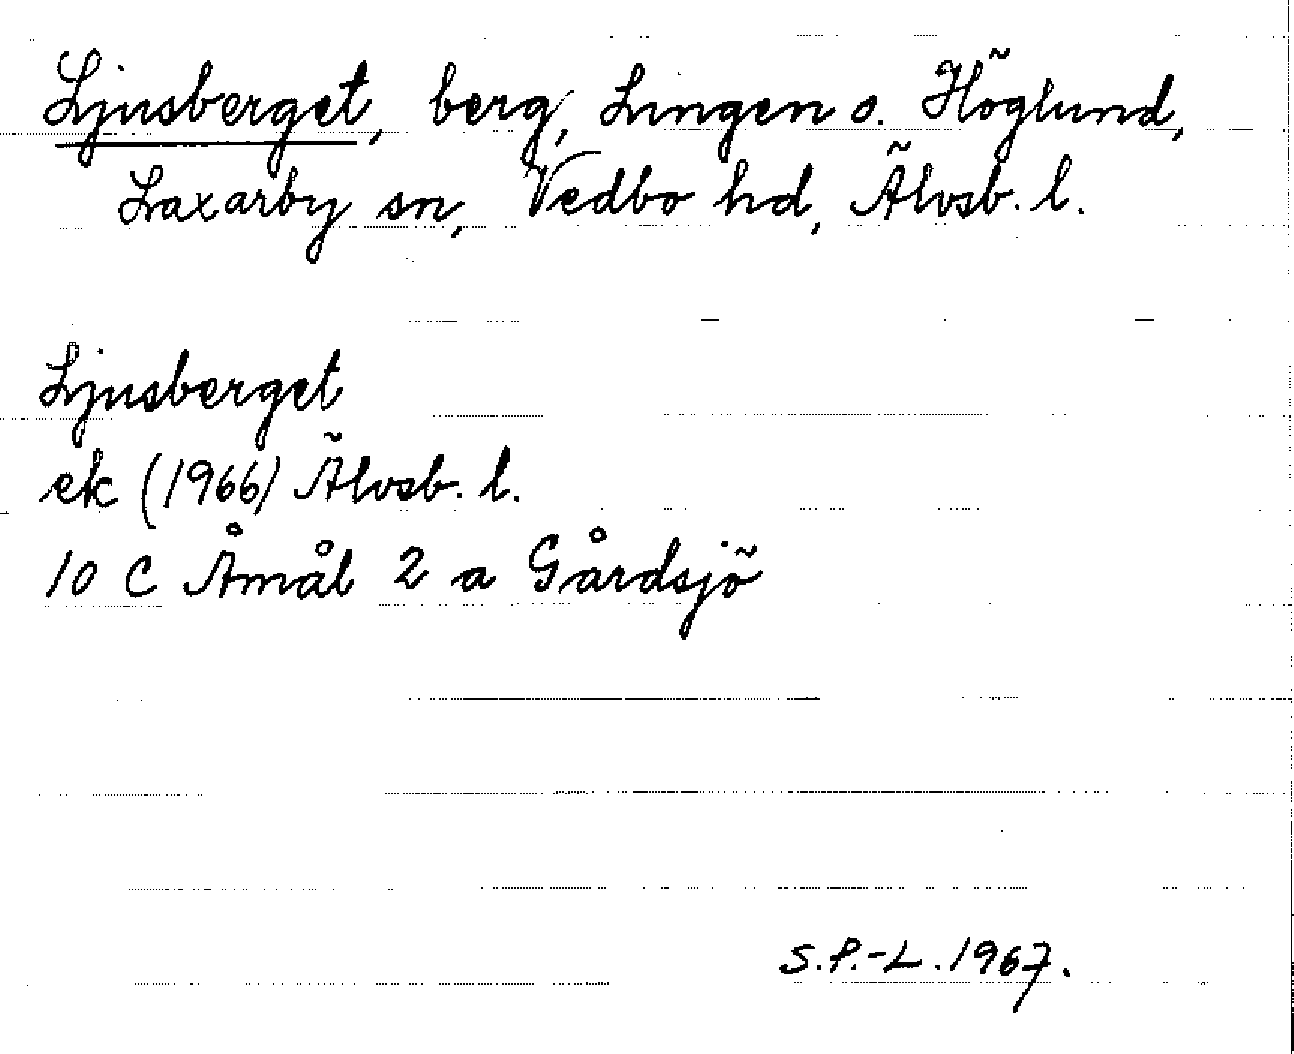 Ljusberget, berg, Lingen o. Höglund,
Laxarby sn, Vedbo hd, Älvsb. l.
Ljusberget
ek (1966) Älvsb. l.
10 C Åmål 2 a Gårdsjö
S.P.-L. 1967.